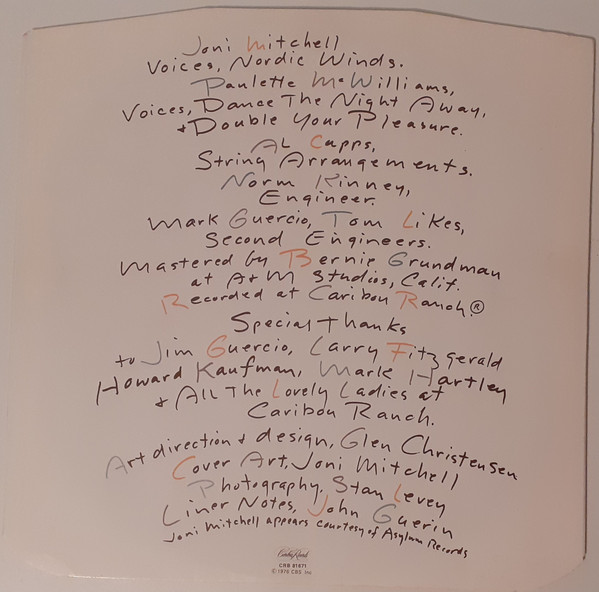 Joni Mitchell
Voices, Nordic Winds.
Paulette McWilliams,
Voices, Dance The Night Away,
+ Double Your Pleasure.
AL Capps,
String Arrangements.
Norm Kinney,
Engineer.
Mark Guercio, Tom Likes,
Second Engineers.
Mastered by Bernie Grundman
at A+M Studios, Calif.
Recorded at Caribou Ranch.®
Special Thanks
to Jim Guercio, Larry Fitzgerald
Howard Kaufman, Mark Hartley
+ All The Lovely Ladies at
Caribou Ranch.
Art direction + design, Glen Christensen
Cover Art, Joni Mitchell
Photography, Stan Levey
Liner Notes, John Guerin
Joni Mitchell appears courtesy of Asylum Records
Caribou Records
CRB 81671
© 1976 CBS Inc.